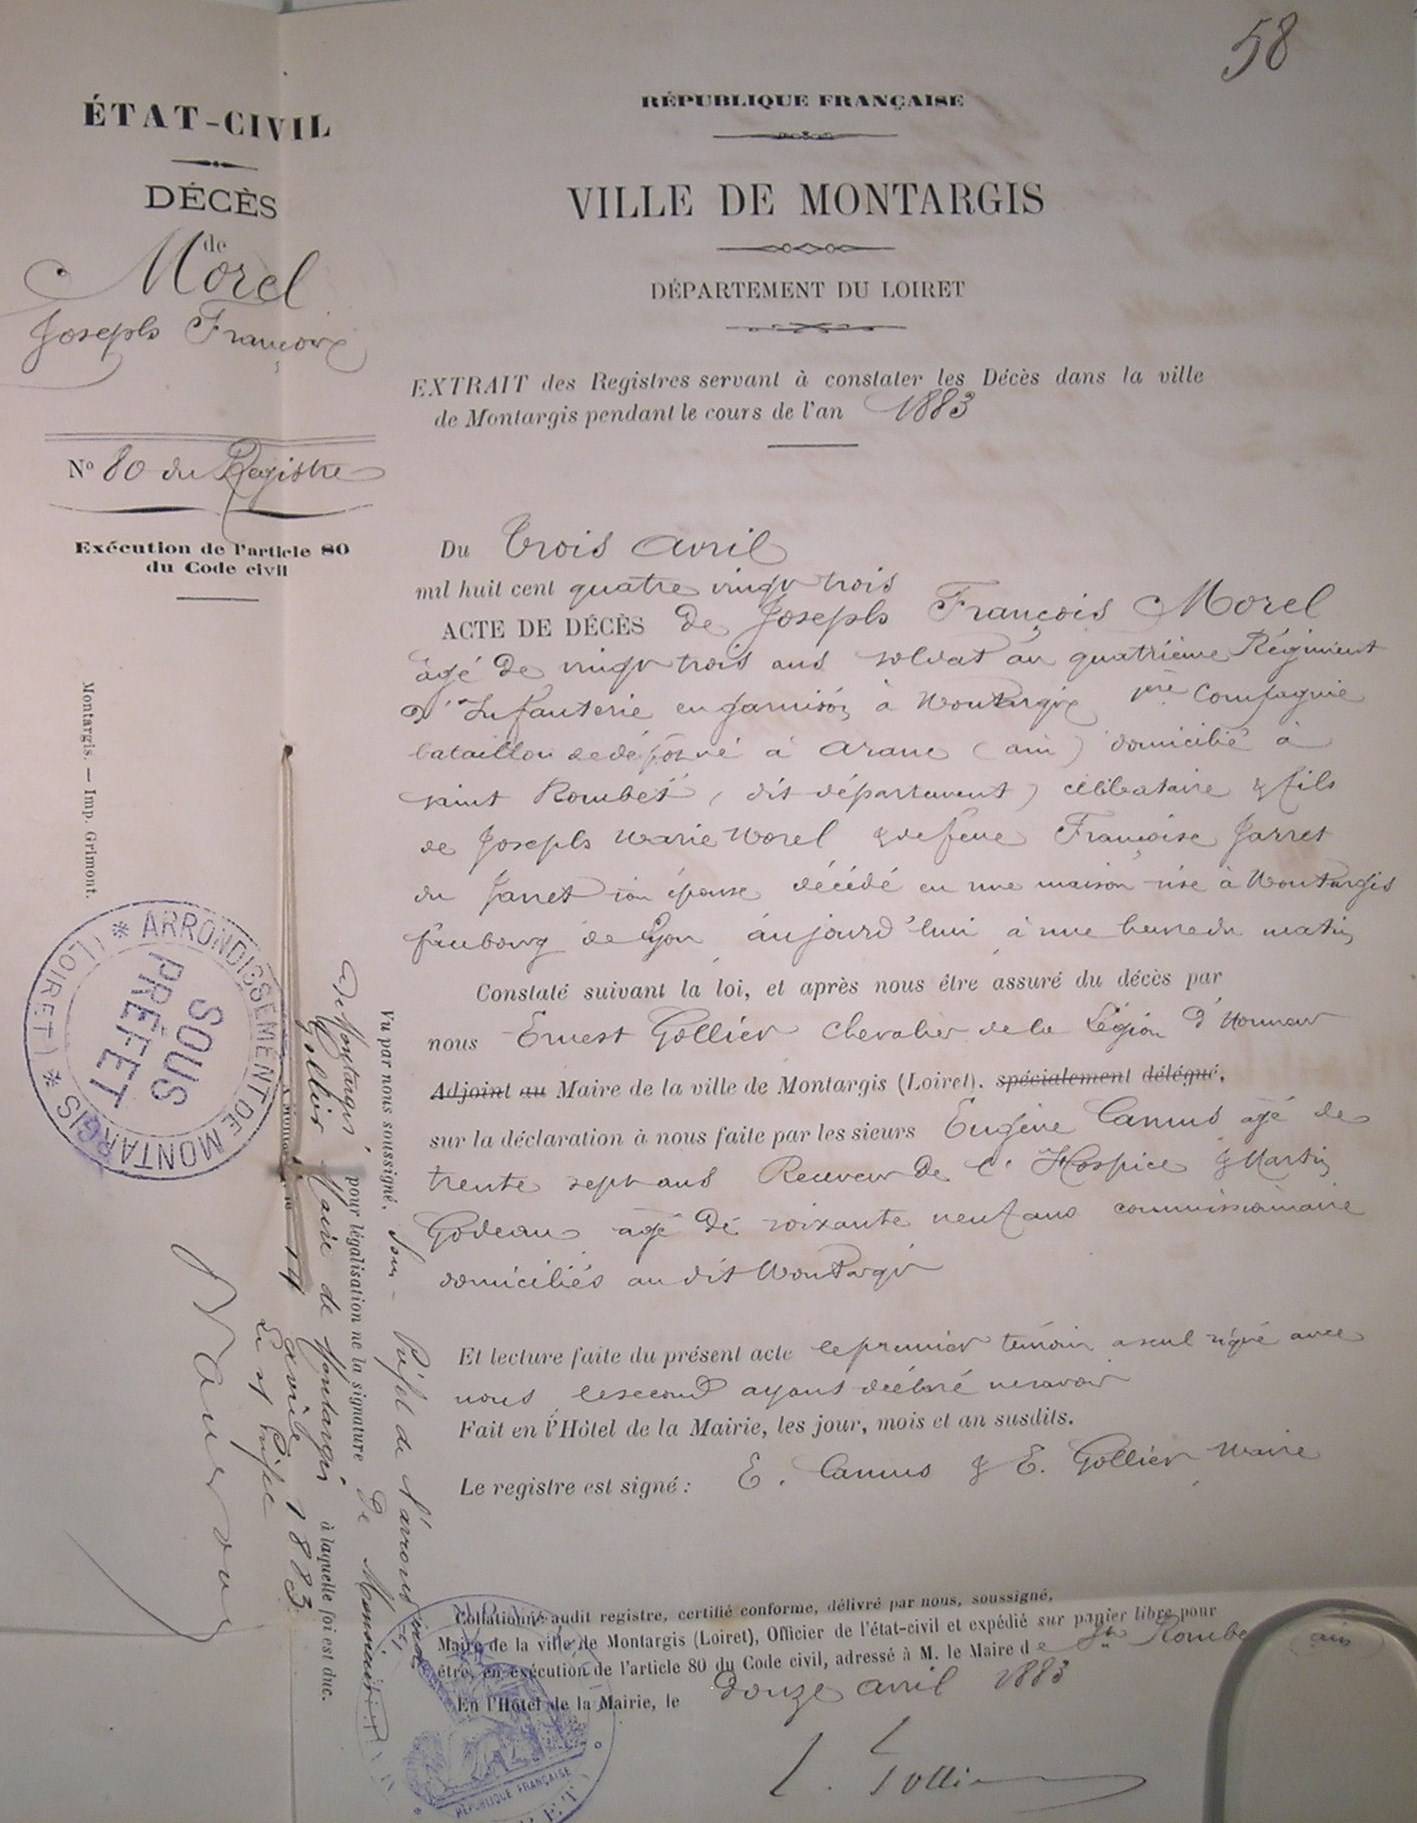 58
ÉTAT-CIVIL
DÉCÈS
de
Morel
Joseph François
N° 80 du Registre
Exécution de l'article 80
du Code civil
Montargis. — Imp. Grimont.
RÉPUBLIQUE FRANÇAISE
VILLE DE MONTARGIS
DÉPARTEMENT DU LOIRET
EXTRAIT des Registres servant à constater les Décès dans la ville
de Montargis pendant le cours de l'an 1883
Du trois avril
mil huit cent quatre vingt trois
ACTE DE DÉCÈS de Joseph François Morel
âgé de vingt trois ans soldat au quatrième Régiment
d'Infanterie en garnison à Montargis 1ère Compagnie
bataillon de dépôt né à Aranc (ain) domicilié à
saint Rombert (dit département) célibataire & fils
de Joseph Marie Morel & de feue Françoise Jarret
ou Janet son épouse décédé en une maison sise à Montargis
faubourg de Lyon aujourd'hui à une heure du matin
Constaté suivant la loi, et après nous être assuré du décès par
nous Ernest Gollier Chevalier de la Légion d'Honneur
Adjoint au Maire de la ville de Montargis (Loiret). spécialement délégué,
sur la déclaration à nous faite par les sieurs Eugène Camus âgé de
trente sept ans Receveur de l'Hospice & Martin
Godeau âgé de soixante neuf ans commissionnaire
domiciliés au dit Montargis
Et lecture faite du présent acte le premier témoin a seul signé avec
nous le second ayant déclaré ne savoir
Fait en l'Hôtel de la Mairie, les jour, mois et an susdits.
Le registre est signé : E. Camus & E. Gollier Maire
Collationné audit registre, certifié conforme, délivré par nous, soussigné,
Maire de la ville de Montargis (Loiret), Officier de l'état-civil et expédié sur papier libre pour
être, en exécution de l'article 80 du Code civil, adressé à M. le Maire de St Rombe (ain)
En l'Hôtel de la Mairie, le Douze avril 1883
E. Gollier
Vu par nous soussigné, Sous-Préfet de l'arrondissement
de Montargis pour légalisation de la signature de Monsieur
Gollier Maire de Montargis à laquelle foi est due.
14 avril 1883
Le S. Préfet
ARRONDISSEMENT DE MONTARGIS * (LOIRET) *
SOUS
PRÉFET
RÉPUBLIQUE FRANÇAISE